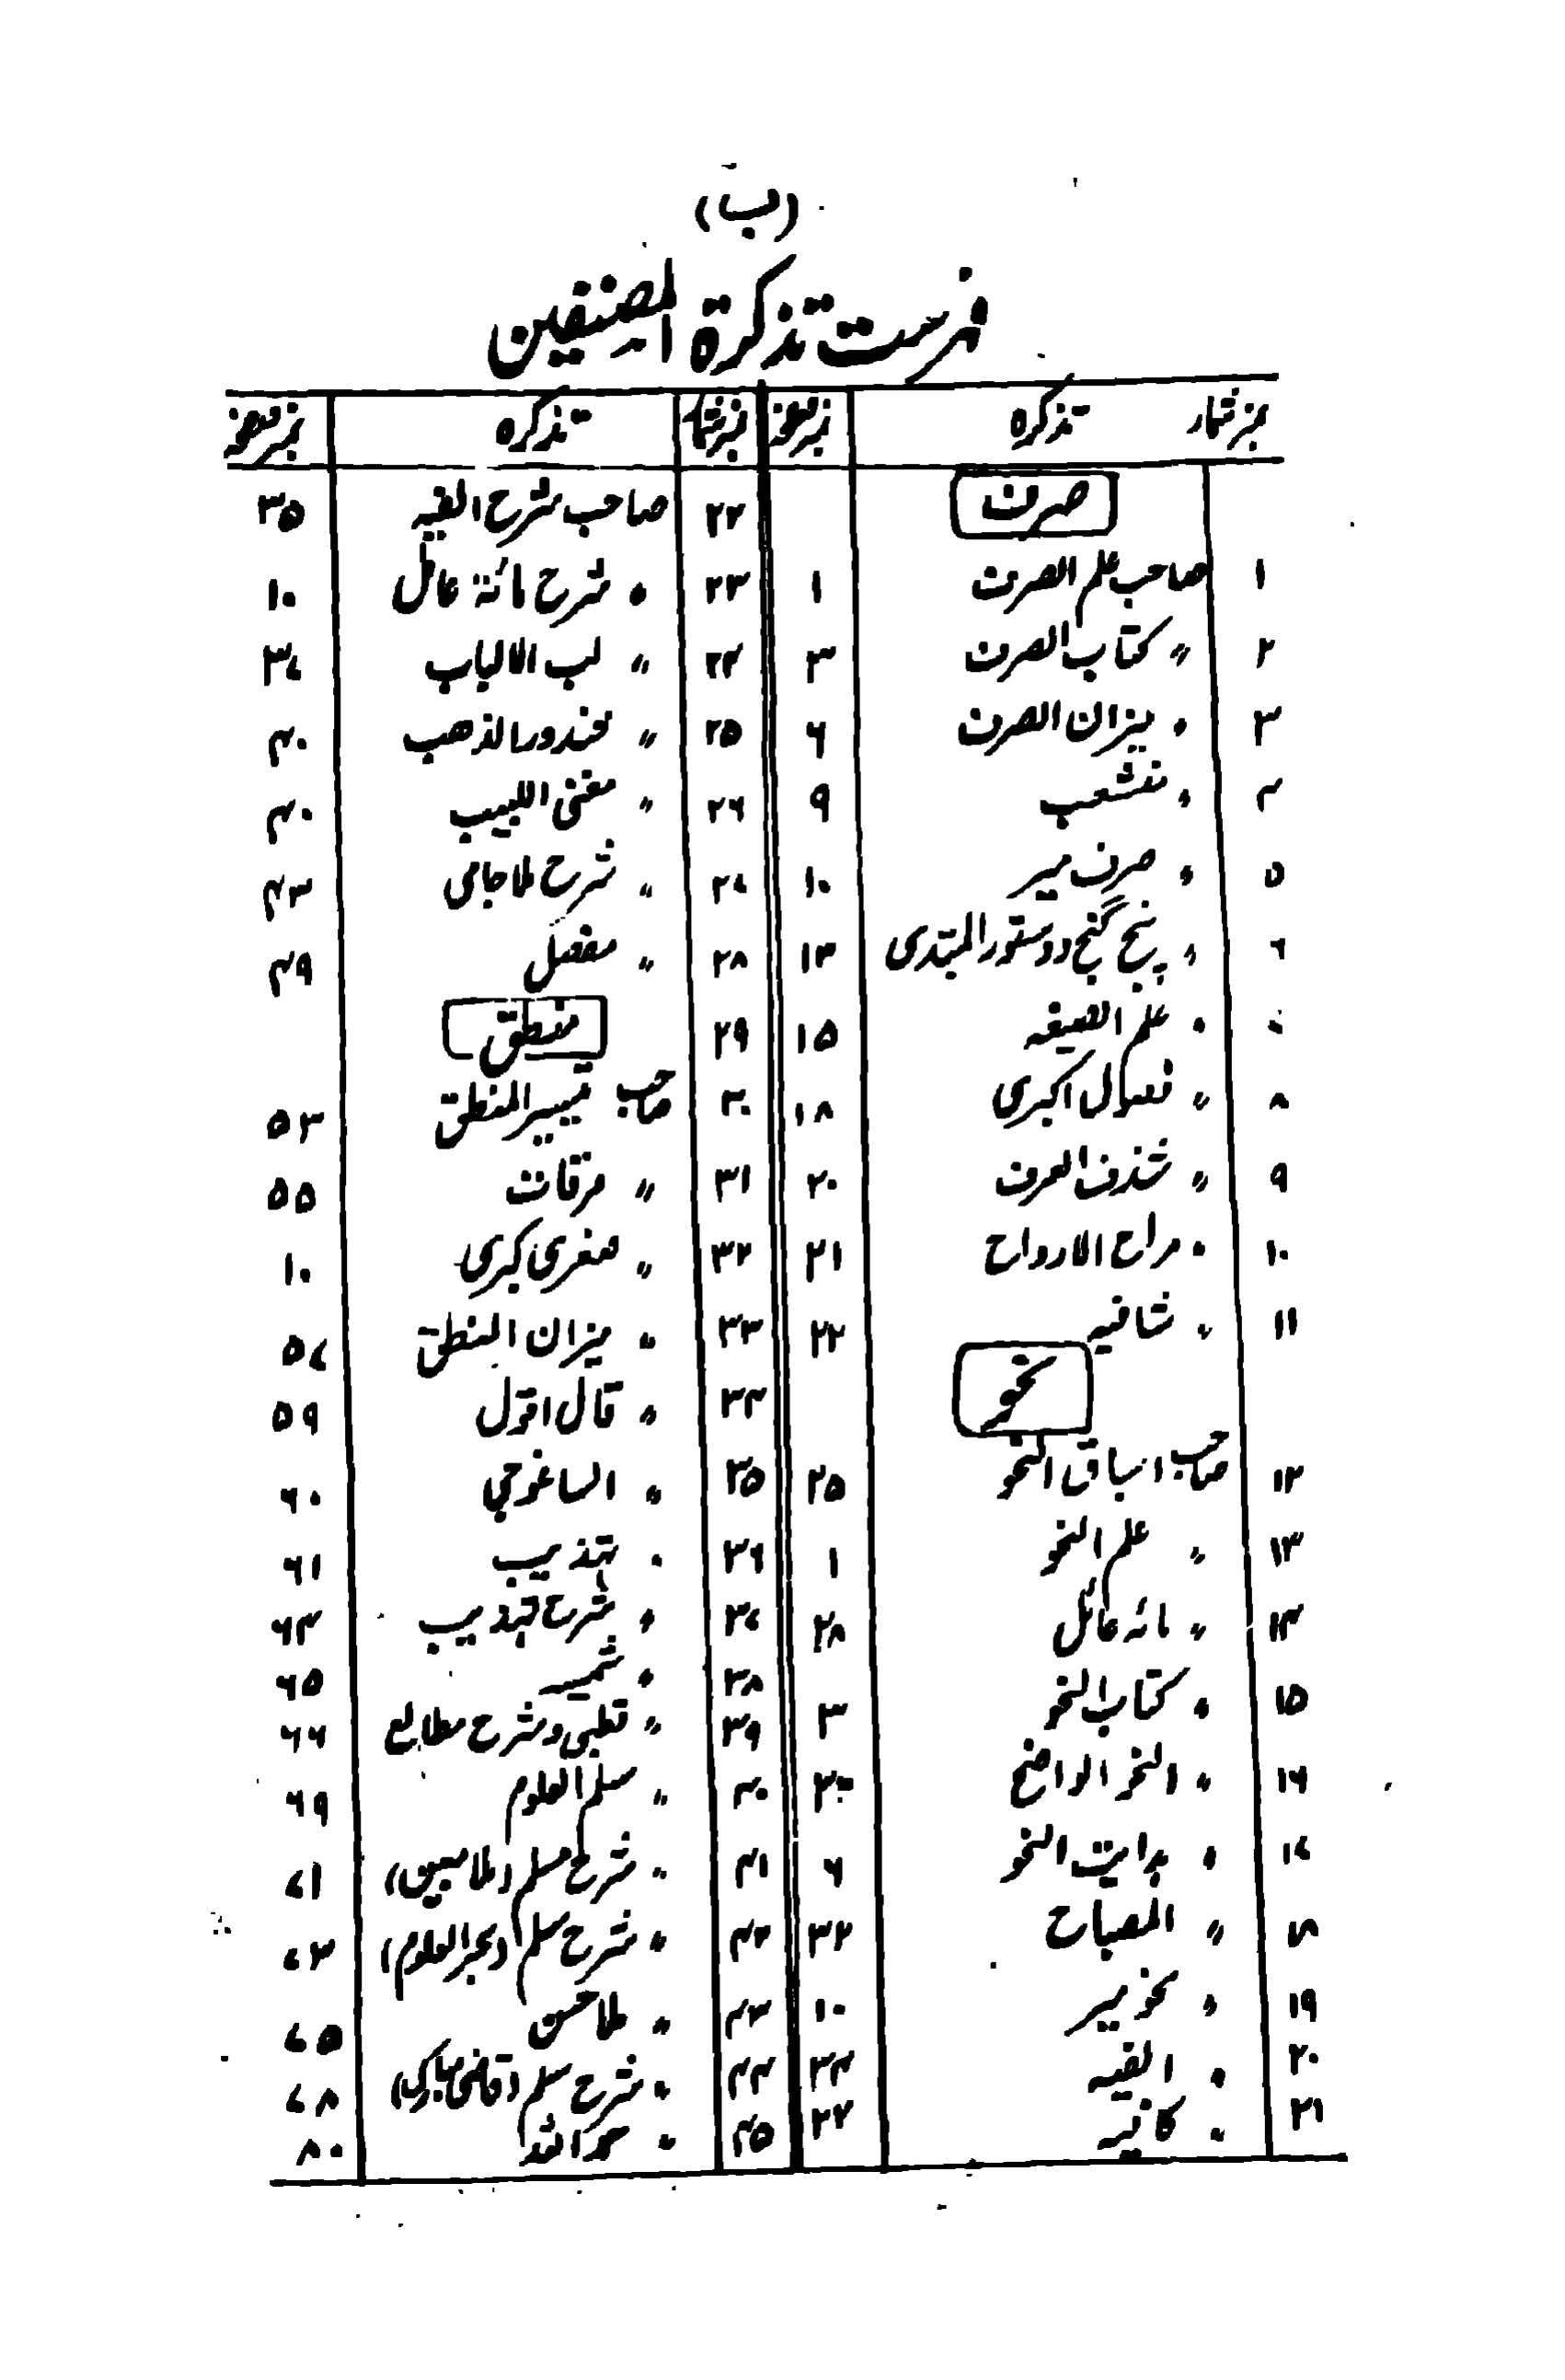 (ب)
فہرست تذکرۃ المصنفین
نمبر شمار تذکرہ نمبر صفحہ
صرف
۱ صاحب علم الصرف ۱
۲ 〃 کتاب الصرف ۳
۳ 〃 میزان الصرف ۶
۴ 〃 منشعب ۹
۵ 〃 صرف میر ۱۰
۶ 〃 پنج گنج و دستور المبتدی ۱۳
۷ 〃 علم الصیغہ ۱۵
۸ 〃 فصول اکبری ۱۸
۹ 〃 شذف العرف ۲۰
۱۰ 〃 مراح الارواح ۲۱
۱۱ 〃 شافیہ ۲۲
نحو
۱۲ صاحب اسباق النحو ۲۵
۱۳ 〃 علم النحو ۱
۱۴ 〃 مائہ عامل ۲۸
۱۵ 〃 کتاب النحو ۳
۱۶ 〃 النحو الواضح ۳۰
۱۷ 〃 ہدایت النحو ۶
۱۸ 〃 المصباح ۳۲
۱۹ 〃 نحو میر ۱۰
۲۰ 〃 الفیہ ۳۴
۲۱ 〃 کافیہ ۲۲
نمبر شمار تذکرہ نمبر صفحہ
۲۲ صاحب شرح الفیہ ۳۵
۲۳ 〃 شرح مائۃ عامل ۱۰
۲۴ 〃 لب الالباب ۳۷
۲۵ 〃 شذور الذھب ۴۰
۲۶ 〃 مغنی اللبیب ۴۰
۲۷ 〃 شرح ملا جامی ۴۳
۲۸ 〃 مفصل ۴۹
۲۹ منطق
۳۰ صاحب تیسیر المنطق ۵۳
۳۱ 〃 مرقات ۵۵
۳۲ 〃 صغری کبری ۱۰
۳۳ 〃 میزان المنطق ۵۷
۳۴ 〃 قال اقول ۵۹
۳۵ 〃 ایساغوجی ۶۰
۳۶ 〃 تہذیب ۶۱
۳۷ 〃 شرح تہذیب ۶۴
۳۸ 〃 شمسیہ ۶۵
۳۹ 〃 قطبی و شرح مطالع ۶۶
۴۰ 〃 سلم العلوم ۶۹
۴۱ 〃 شرح سلم (ملا مبین) ۷۱
۴۲ 〃 شرح سلم (بحر العلوم) ۷۳
۴۳ 〃 ملا حسن ۷۵
۴۴ 〃 شرح سلم (قاضی مبارک) ۷۸
۴۵ 〃 حمد اللہ ۸۰